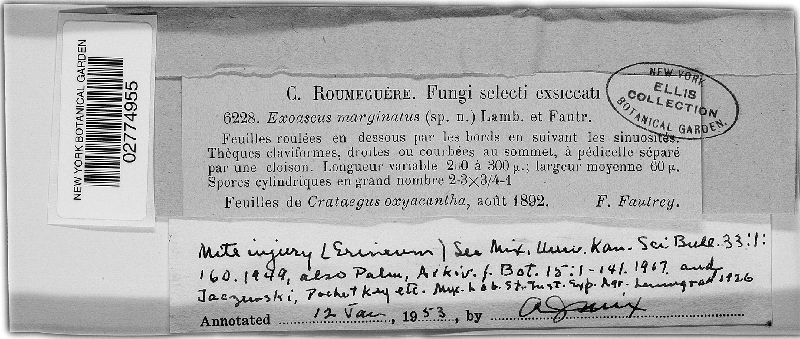 NEW YORK BOTANICAL GARDEN
02774955
C. ROUMEGUÈRE. Fungi selecti exsiccati
NEW YORK
ELLIS
COLLECTION
BOTANICAL GARDEN.
6228. Exoascus marginatus (sp. n.) Lamb. et Fautr.
Feuilles roulées en dessous par les bords en suivant les sinuosités.
Thèques claviformes, droites ou courbées au sommet, à pédicelle séparé
par une cloison. Longueur variable 250 à 300 µ.; largeur moyenne 60 µ.
Spores cylindriques en grand nombre 2-3×3/4-1
Feuilles de Crataegus oxyacantha, août 1892. F. Fautrey.
Mite injury (Erineum) See Mix, Univ. Kan. Sci Bull. 33:1:
160. 1949, also Palm, Arkiv. f. Bot. 15:1-141. 1917. and
Jaczewski, Pocket Key etc. Myc. Lab. St. Inst. Exp. Agr. Leningrad 1926
Annotated 12 Jan, 1953, by A J Mix